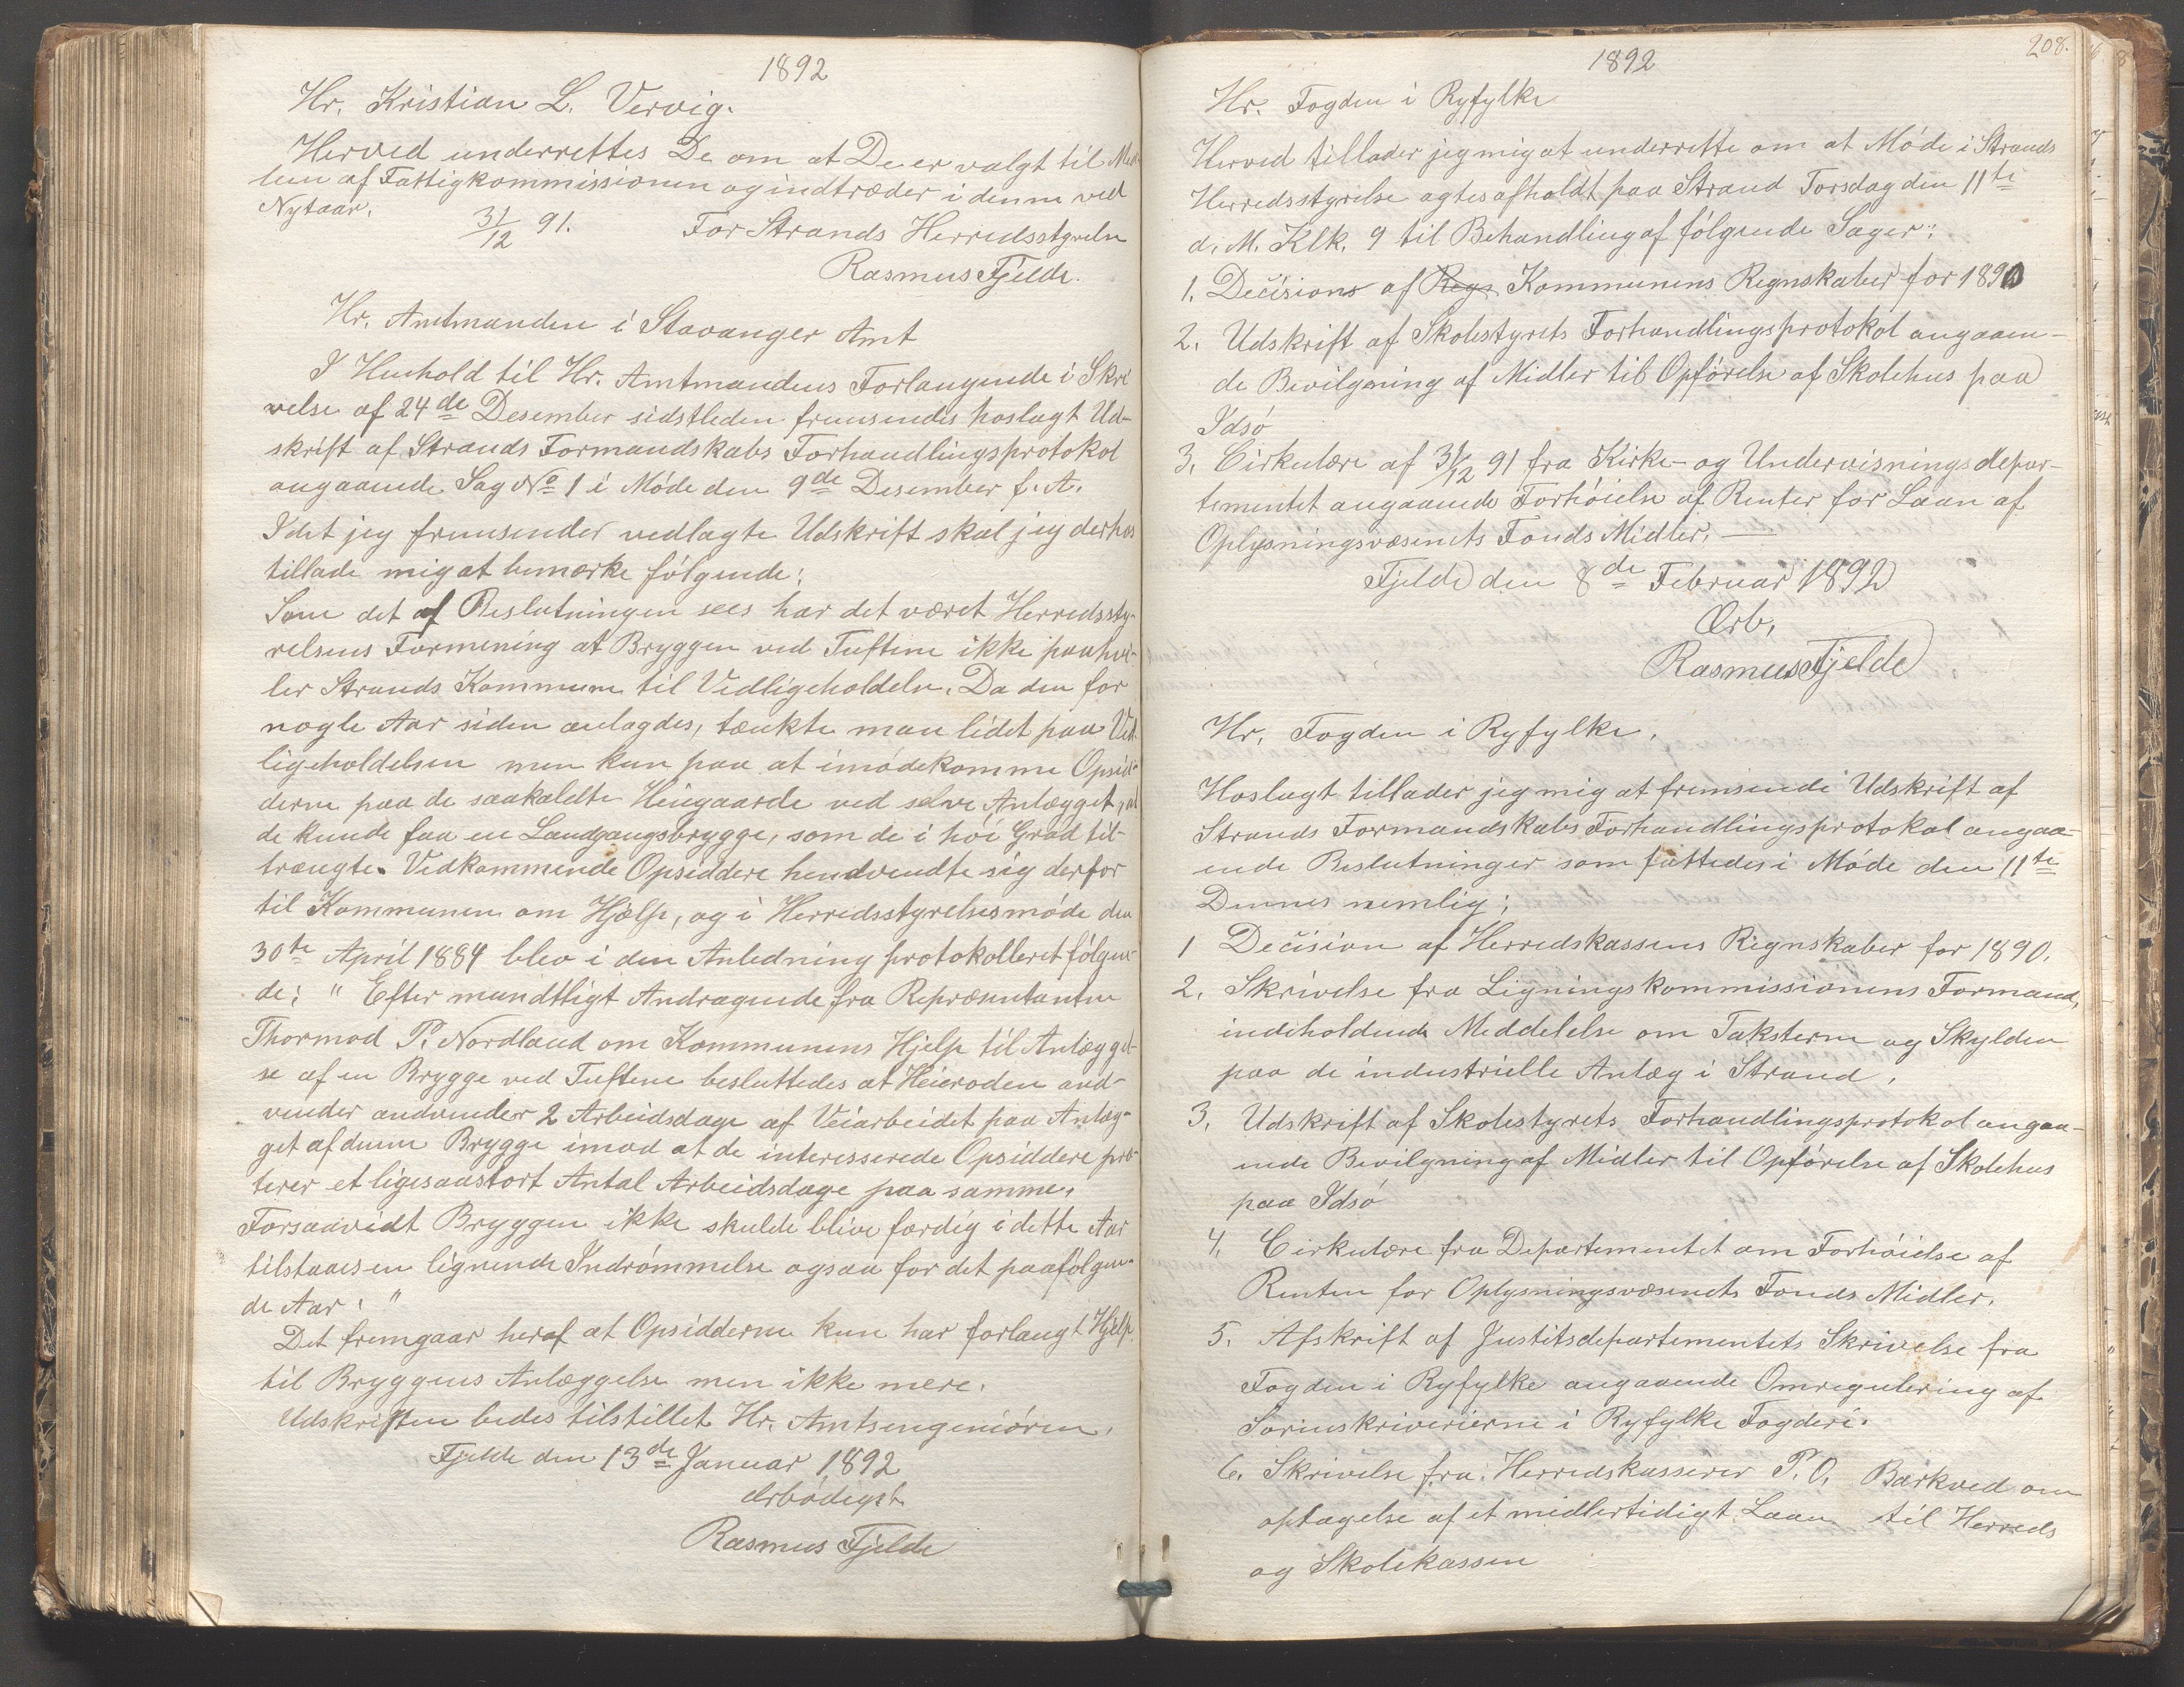 1892
Hr. Kristian L. Vervig.
Herved underrettes De om at De er valgt til Med-
lem af Fattigkommissionen og indtræder i denne ved
Nytaar.
31/12 91. For Strands Herredsstyrelse
Rasmus Fjelde.
Hr. Amtmanden i Stavanger Amt
I Henhold til Hr. Amtmandens Forlangende i Skri
velse af 24de Desember sidstleden fremsendes hoslagt Ud-
skrift af Strands Formandskabs Forhandlingsprotokol
angaaende Sag No 1 i Møde den 9de Desember f. A.
Idet jeg fremsender vedlagte Udskrift skal jeg derhos
tillade mig at bemærke følgende:
Som det af Beslutningen sees har det været Herredssty-
relsens Formening at Bryggen ved Tuftene ikke paahvi-
ler Strands Kommune til Vedligeholdelse. Da den for
nogle Aar siden anlagdes, tænkte man lidet paa Ved-
ligeholdelsen men kun paa at imødekomme Opsid-
derne paa de saakaldte Heiegaarde ved selve Anlægget, at
de kunde faa en Landgangsbrygge, som de i høi Grad til-
trængte. Vedkommende Opsiddere hendvendte sig derfor
til Kommunen om Hjælp, og i Herredsstyrelsesmøde den
30te April 1884 blev i den Anledning protokolleret følgen-
de: " Efter mundtligt Andragende fra Repræsentanten
Thormod P. Nordland om Kommunens Hjelp til Anlæggel-
se af en Brygge ved Tuftene besluttedes at Heieroden and-
vender andvender 2 Arbeidsdage af Veiarbeidet paa Anlæg-
get af denne Brygge imod at de interesserede Opsiddere præ-
terer et ligesaastort Antal Arbeidsdage paa samme.
Forsaavidt Bryggen ikke skulde blive færdig i dette Aar
tilstaaes en lignende Indrømmelse ogsaa for det paafølgen-
de Aar. "
Det fremgaar heraf at Opsidderne kun har forlangt Hjelp
til Bryggens Anlæggelse men ikke mere.
Udskriften bedes tilstillet Hr. Amtsengeniøren.
Fjelde den 13de Januar 1892
Ærbødigst
Rasmus Fjelde
208.
1892
Hr. Fogden i Ryfylke
Herved tillader jeg mig at underrette om at Møde i Strands
Herredsstyrelse agtes afholdt paa Strand Torsdag den 11te
d. M. Klk. 9 til Behandling af følgende Sager:
1. Decisions af Regn Kommunens Regnskaber for 1890
2. Udskrift af Skolestyrets Forhandlingsprotokol angaaen-
de Bevilgning af Midler til Opførelse af Skolehus paa
Idsø
3. Cirkulære af 31/12 91 fra Kirke- og Undervisningsdepar-
tementet angaaende Forhøielse af Renter for Laan af
Oplysningsvæsenets Fonds Midler. —
Fjelde den 8de Februar 1892
Ærb,
Rasmus Fjelde
Hr. Fogden i Ryfylke.
Hoslagt tillader jeg mig at fremsende Udskrift af
Strands Formandskabs Forhandlingsprotokol angaa-
ende Beslutninger som fattedes i Møde den 11te
Dennes nemlig:
1 Decision af Herredskassens Regnskaber for 1890.
2. Skrivelse fra Ligningskommissionens Formand,
indeholdende Meddelelse om Taksterne og Skylden
paa de industrielle Anlæg i Strand.
3. Udskrift af Skolestyrets Forhandlingsprotokol angaa-
ende Bevilgning af Midler til Opførelse af Skolehus
paa Idsø
4. Cirkulære fra Departementet om Forhøielse af
Renten for Oplysningsvæsenets Fonds Midler.
5. Afskrift af Justitsdepartementets Skrivelse fra
Fogden i Ryfylke angaaende Omregulering af
Sorenskriverierne i Ryfylke Fogderi.
6. Skrivelse fra Herredskasserer P. O. Barkved om
optagelse af et midlertidigt Laan til Herreds
og Skolekassen